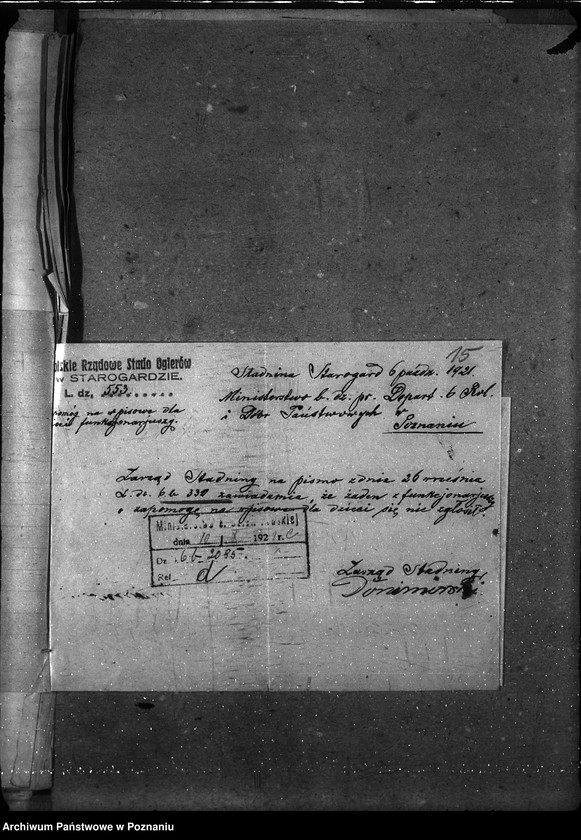 15
olskie Rządowe Stado Ogierów
w STAROGARDZIE.
L. dz, 553
Stadnina Starogard 6 paźdz. 1921.
Ministerstwo b. dz. pr. Depart. 6 Rol.
i Dóbr Państwowych w
Poznaniu
pomóg na wpisowe dla
funkcjonarjuszy.
Zarząd Stadniny na pismo z dnia 26 września
L. dz. 6 b 330 zawiadamia, że żaden z funkcjonarjuszy
o zapomogę na wpisowe dla dzieci się nie zgłosił.
dnia 10 X 192 r.
Dz. 6 b 2085.
Ref. d
Zarząd Stadniny
Donimirski
Archiwum Państwowe w Poznaniu